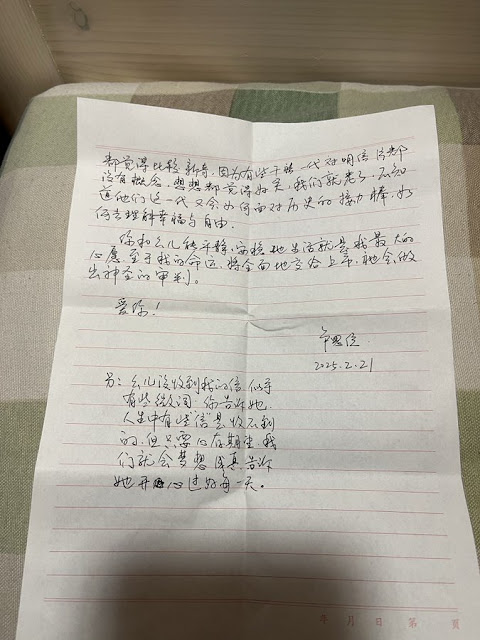 都觉得比较新奇，因为有些年轻一代对明信片都
没有概念，想想都觉得好笑，我们就老了，不知
道他们这一代又会如何面对历史的接力棒，如
何去理解幸福与自由。
你和幺儿能平静、安稳地生活就是我最大的
心愿，至于我的命运，将全面地交给上帝，祂会做
出神圣的审判。
爱你！
2025.2.21
另：幺儿没收到我的信，似乎
有些微词，你告诉她，
人生中有些“信”是收不到
的，但只要心存期望，我
们就会梦想成真，告诉
她开心过好每一天。
年 月 日 第 页